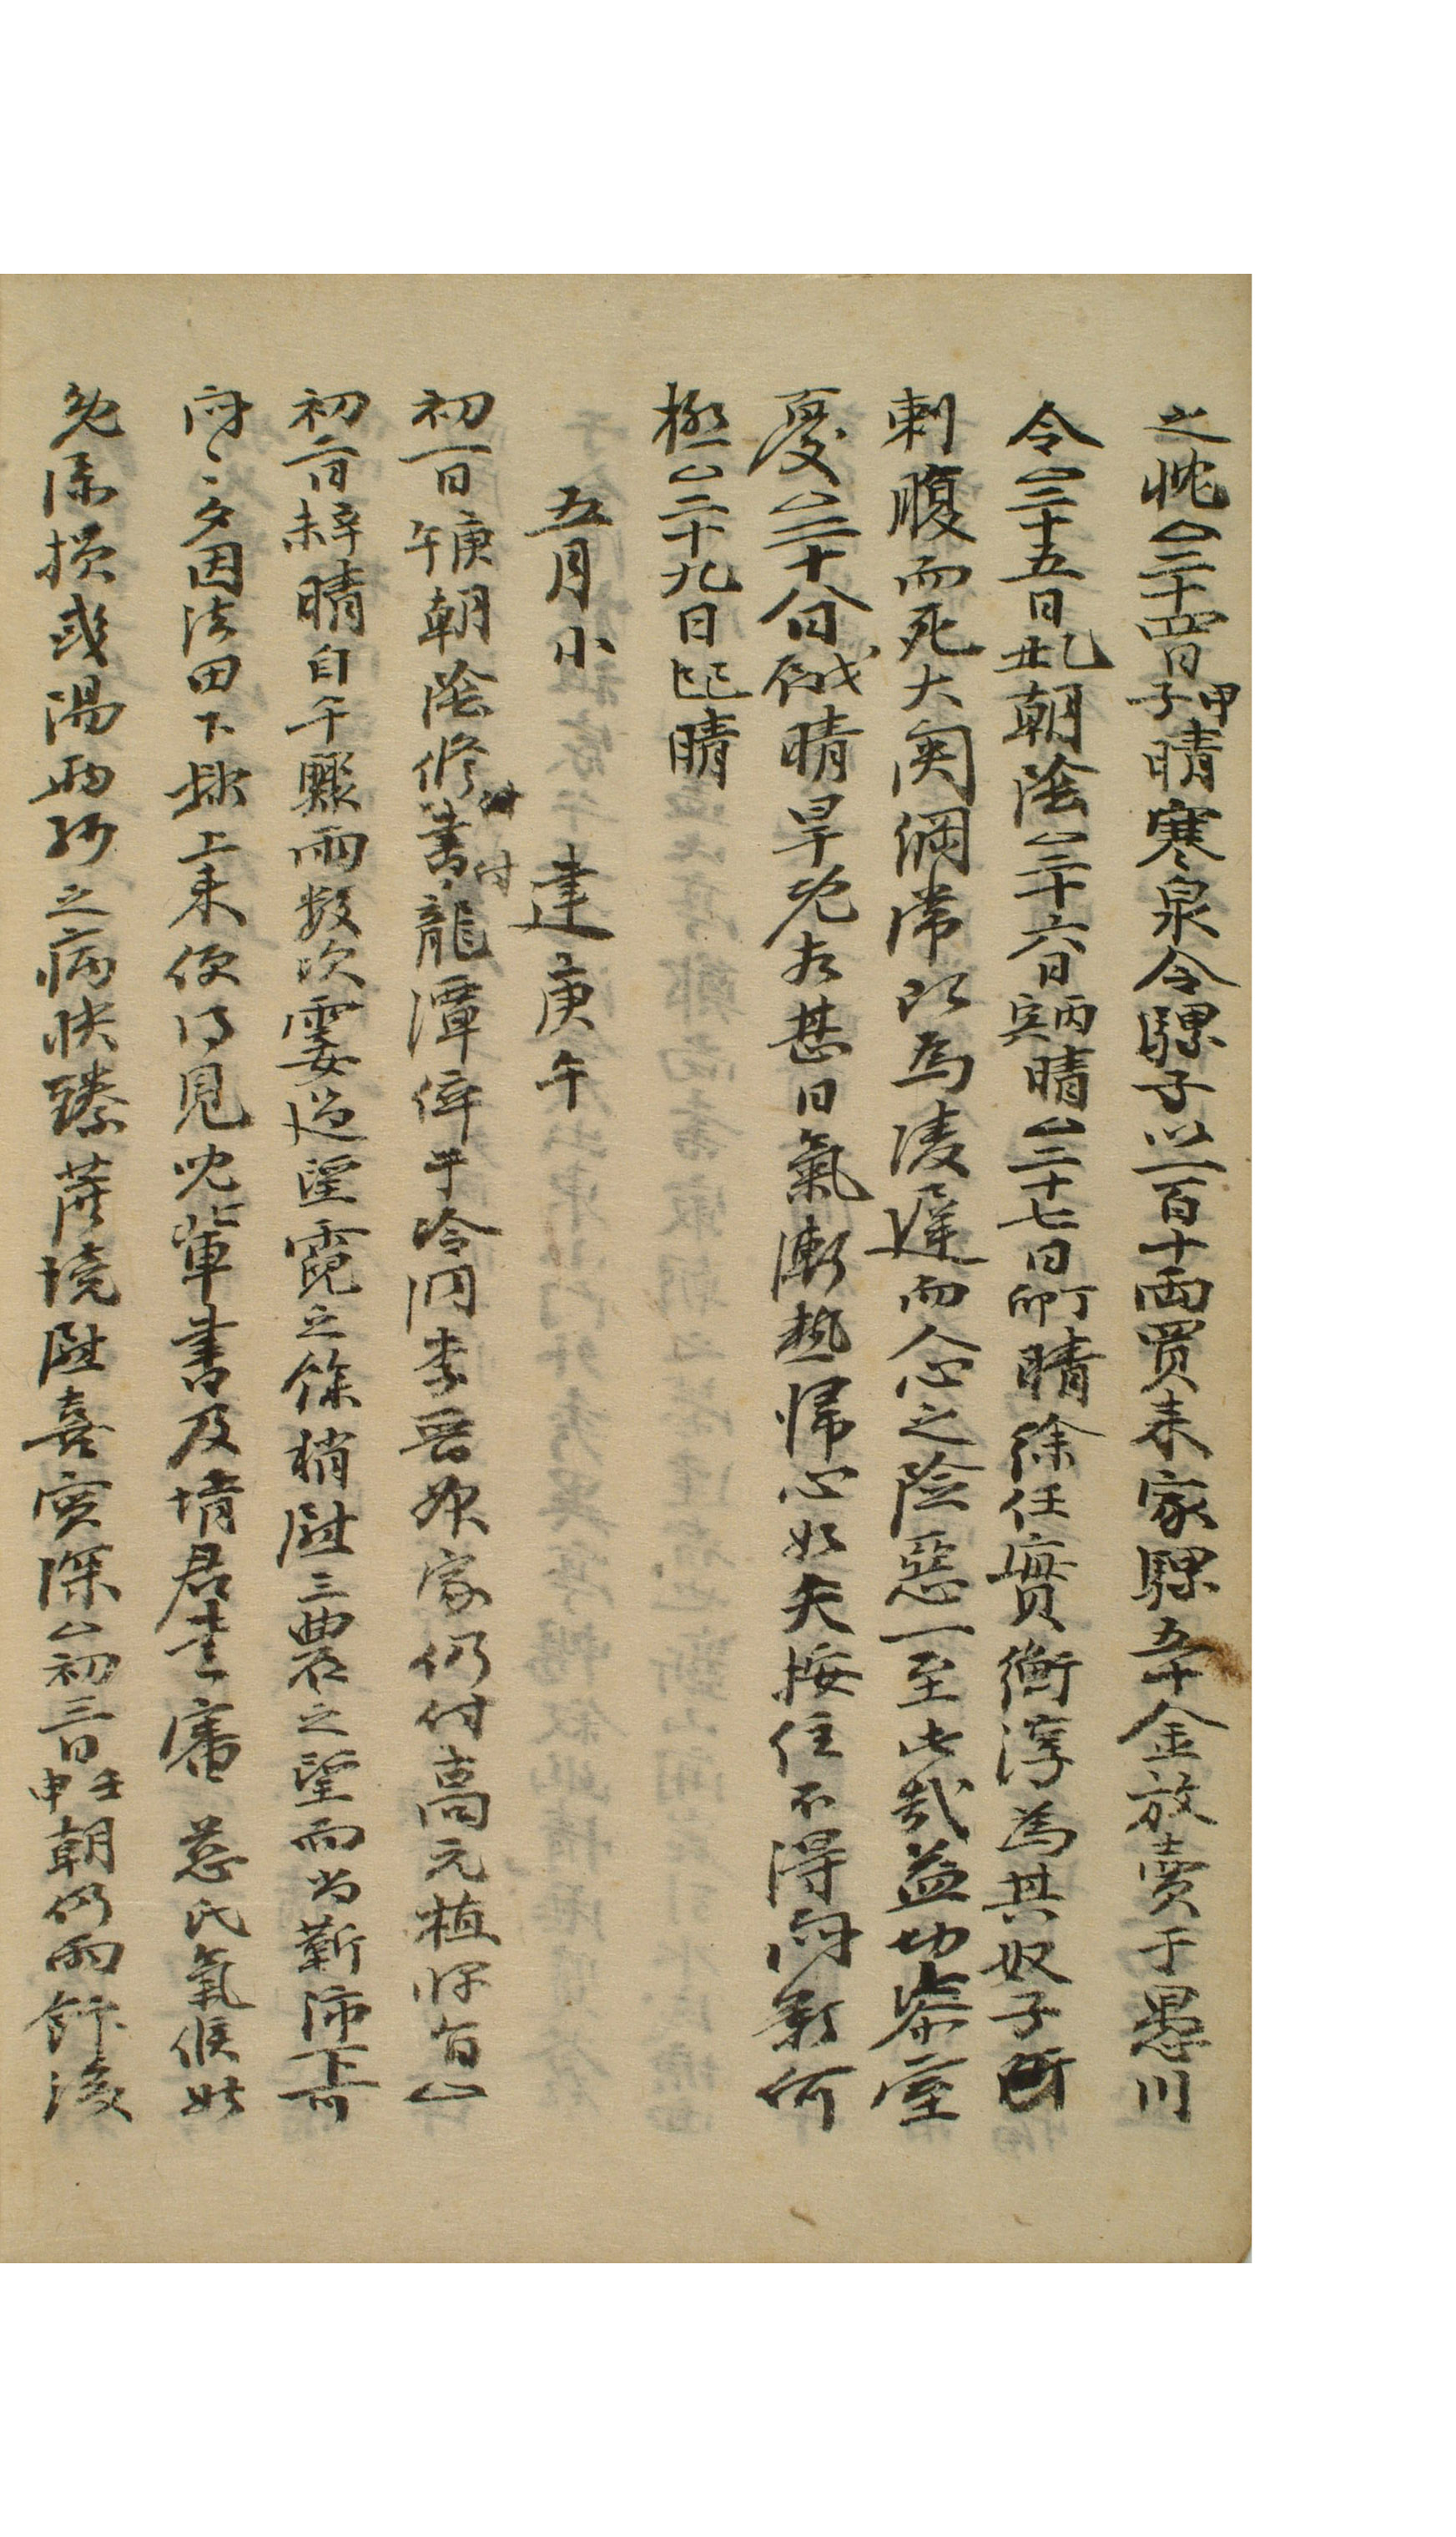 之忱△二十四日甲子晴寒泉令騾子以一百十両買来家騾五十金放賣于愚川
令△二十五日乙丑朝陰△二十六日丙寅晴△二十七日丁卯晴徐任實衡淳為其奴子所
刺腹而死大関綱常以為凌遅而人心之險惡一至此哉益切柒室
憂△二十八日戊辰晴旱旣太甚日氣漸熱歸心如矢按住不得悶菀何
極△二十九日己巳晴
五月小 建庚午
初一日庚午朝陰修書付龍潭倅于冷洞李吾叔家仍付高元植便△
初二日辛未晴自午驟雨數次霎過望霓之餘稍慰三農之望而尚靳沛下可
悶〻夕因法田下隷上来便得見兒輩書及堉君書審 慈氏氣候姑
免添損彧湯両孫之病快臻蔗境慰喜實深△初三日壬申朝仍雨飯後